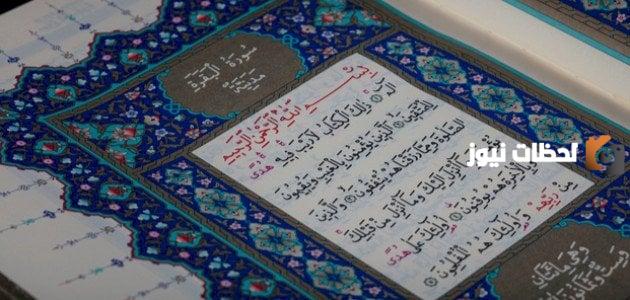 سورة البقرة
مدنية
بسم الله الرحمن الرحيم
الم ذلك الكتاب لا ريب فيه هدى
للمتقين الذين يؤمنون بالغيب ويقيمون
الصلوة ومما رزقناهم ينفقون والذين
يؤمنون بما أنزل إليك وما أنزل من قبلك
وبالآخرة هم يوقنون أولئك على هدى
من ربهم وأولئك هم المفلحون
وهي مائتان
لحظات نيوز